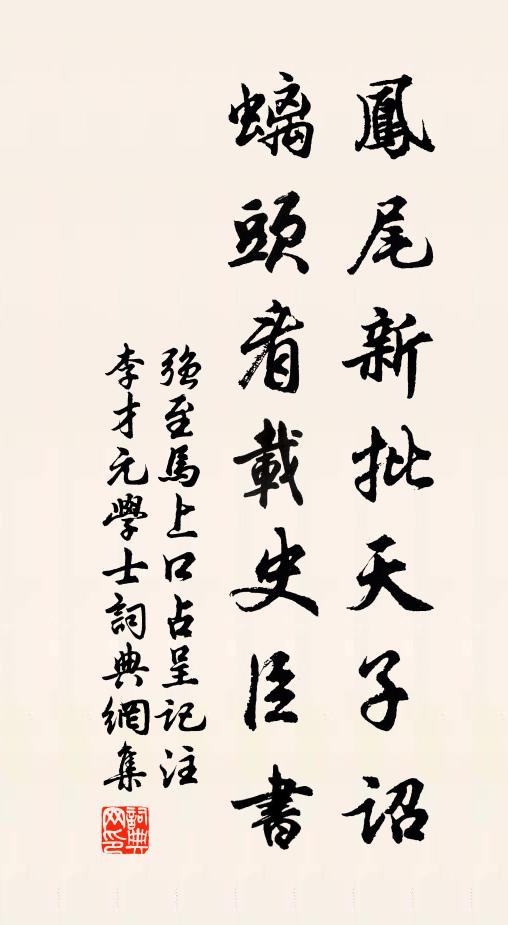 鳳尾新批天子詔
螭頭看載史臣書
強至馬上口占呈記注
李才元學士詞典網集
詞典
网印